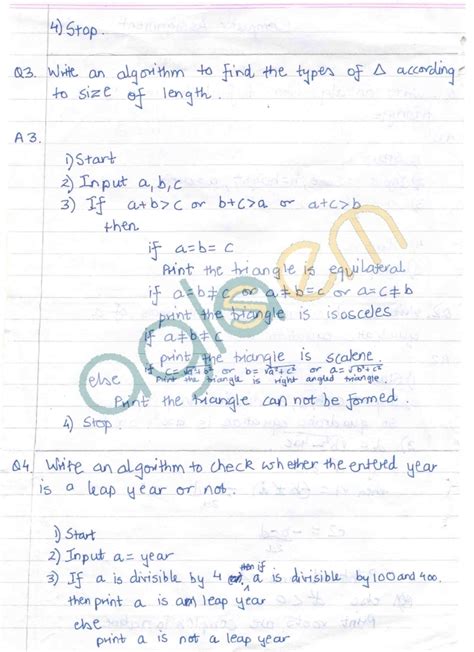 4) Stop.
Q3. Write an algorithm to find the types of Δ according
to size of length.
A3.
1) Start
2) Input a, b, c
3) If a+b>c or b+c>a or a+c>b
then
if a=b=c
Print the triangle is equilateral
if a=b≠c or a≠b=c or a=c≠b
print the triangle is isosceles
if a≠b≠c
print the triangle is scalene.
if c=√a²+b² or b=√a²+c² or a=√b²+c²
Print the triangle is right angled triangle.
else
Print the triangle can not be formed.
4) Stop
Q4. Write an algorithm to check whether the entered year
is a leap year or not.
1) Start
2) Input a = year
3) If a is divisible by 4 then if a is divisible by 100 and 400.
then print a is a leap year
else
print a is not a leap year
aglasem